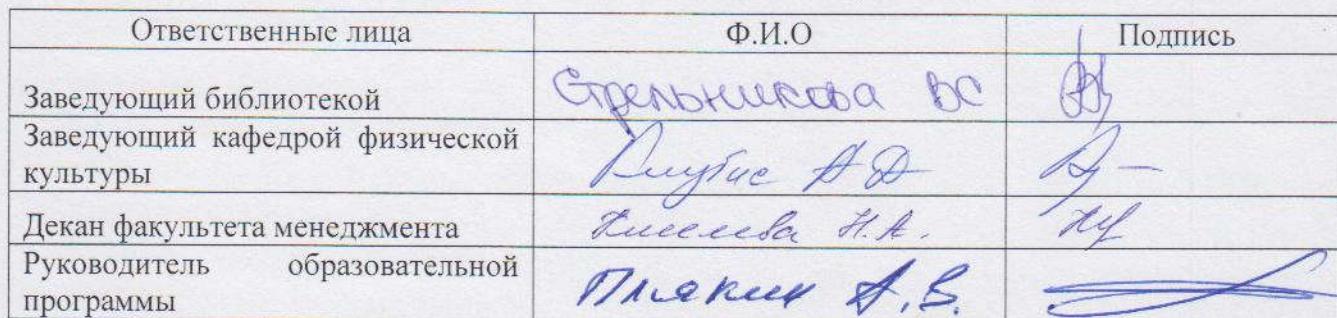 Ответственные лица Ф.И.О Подпись
Заведующий библиотекой Стрельникова ВС
Заведующий кафедрой физической
культуры А Д
Декан факультета менеджмента Киселева Н.А.
Руководитель образовательной
программы Плякин А.В.